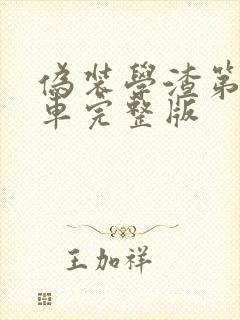 偽裝學渣第
車完整版
王加祥